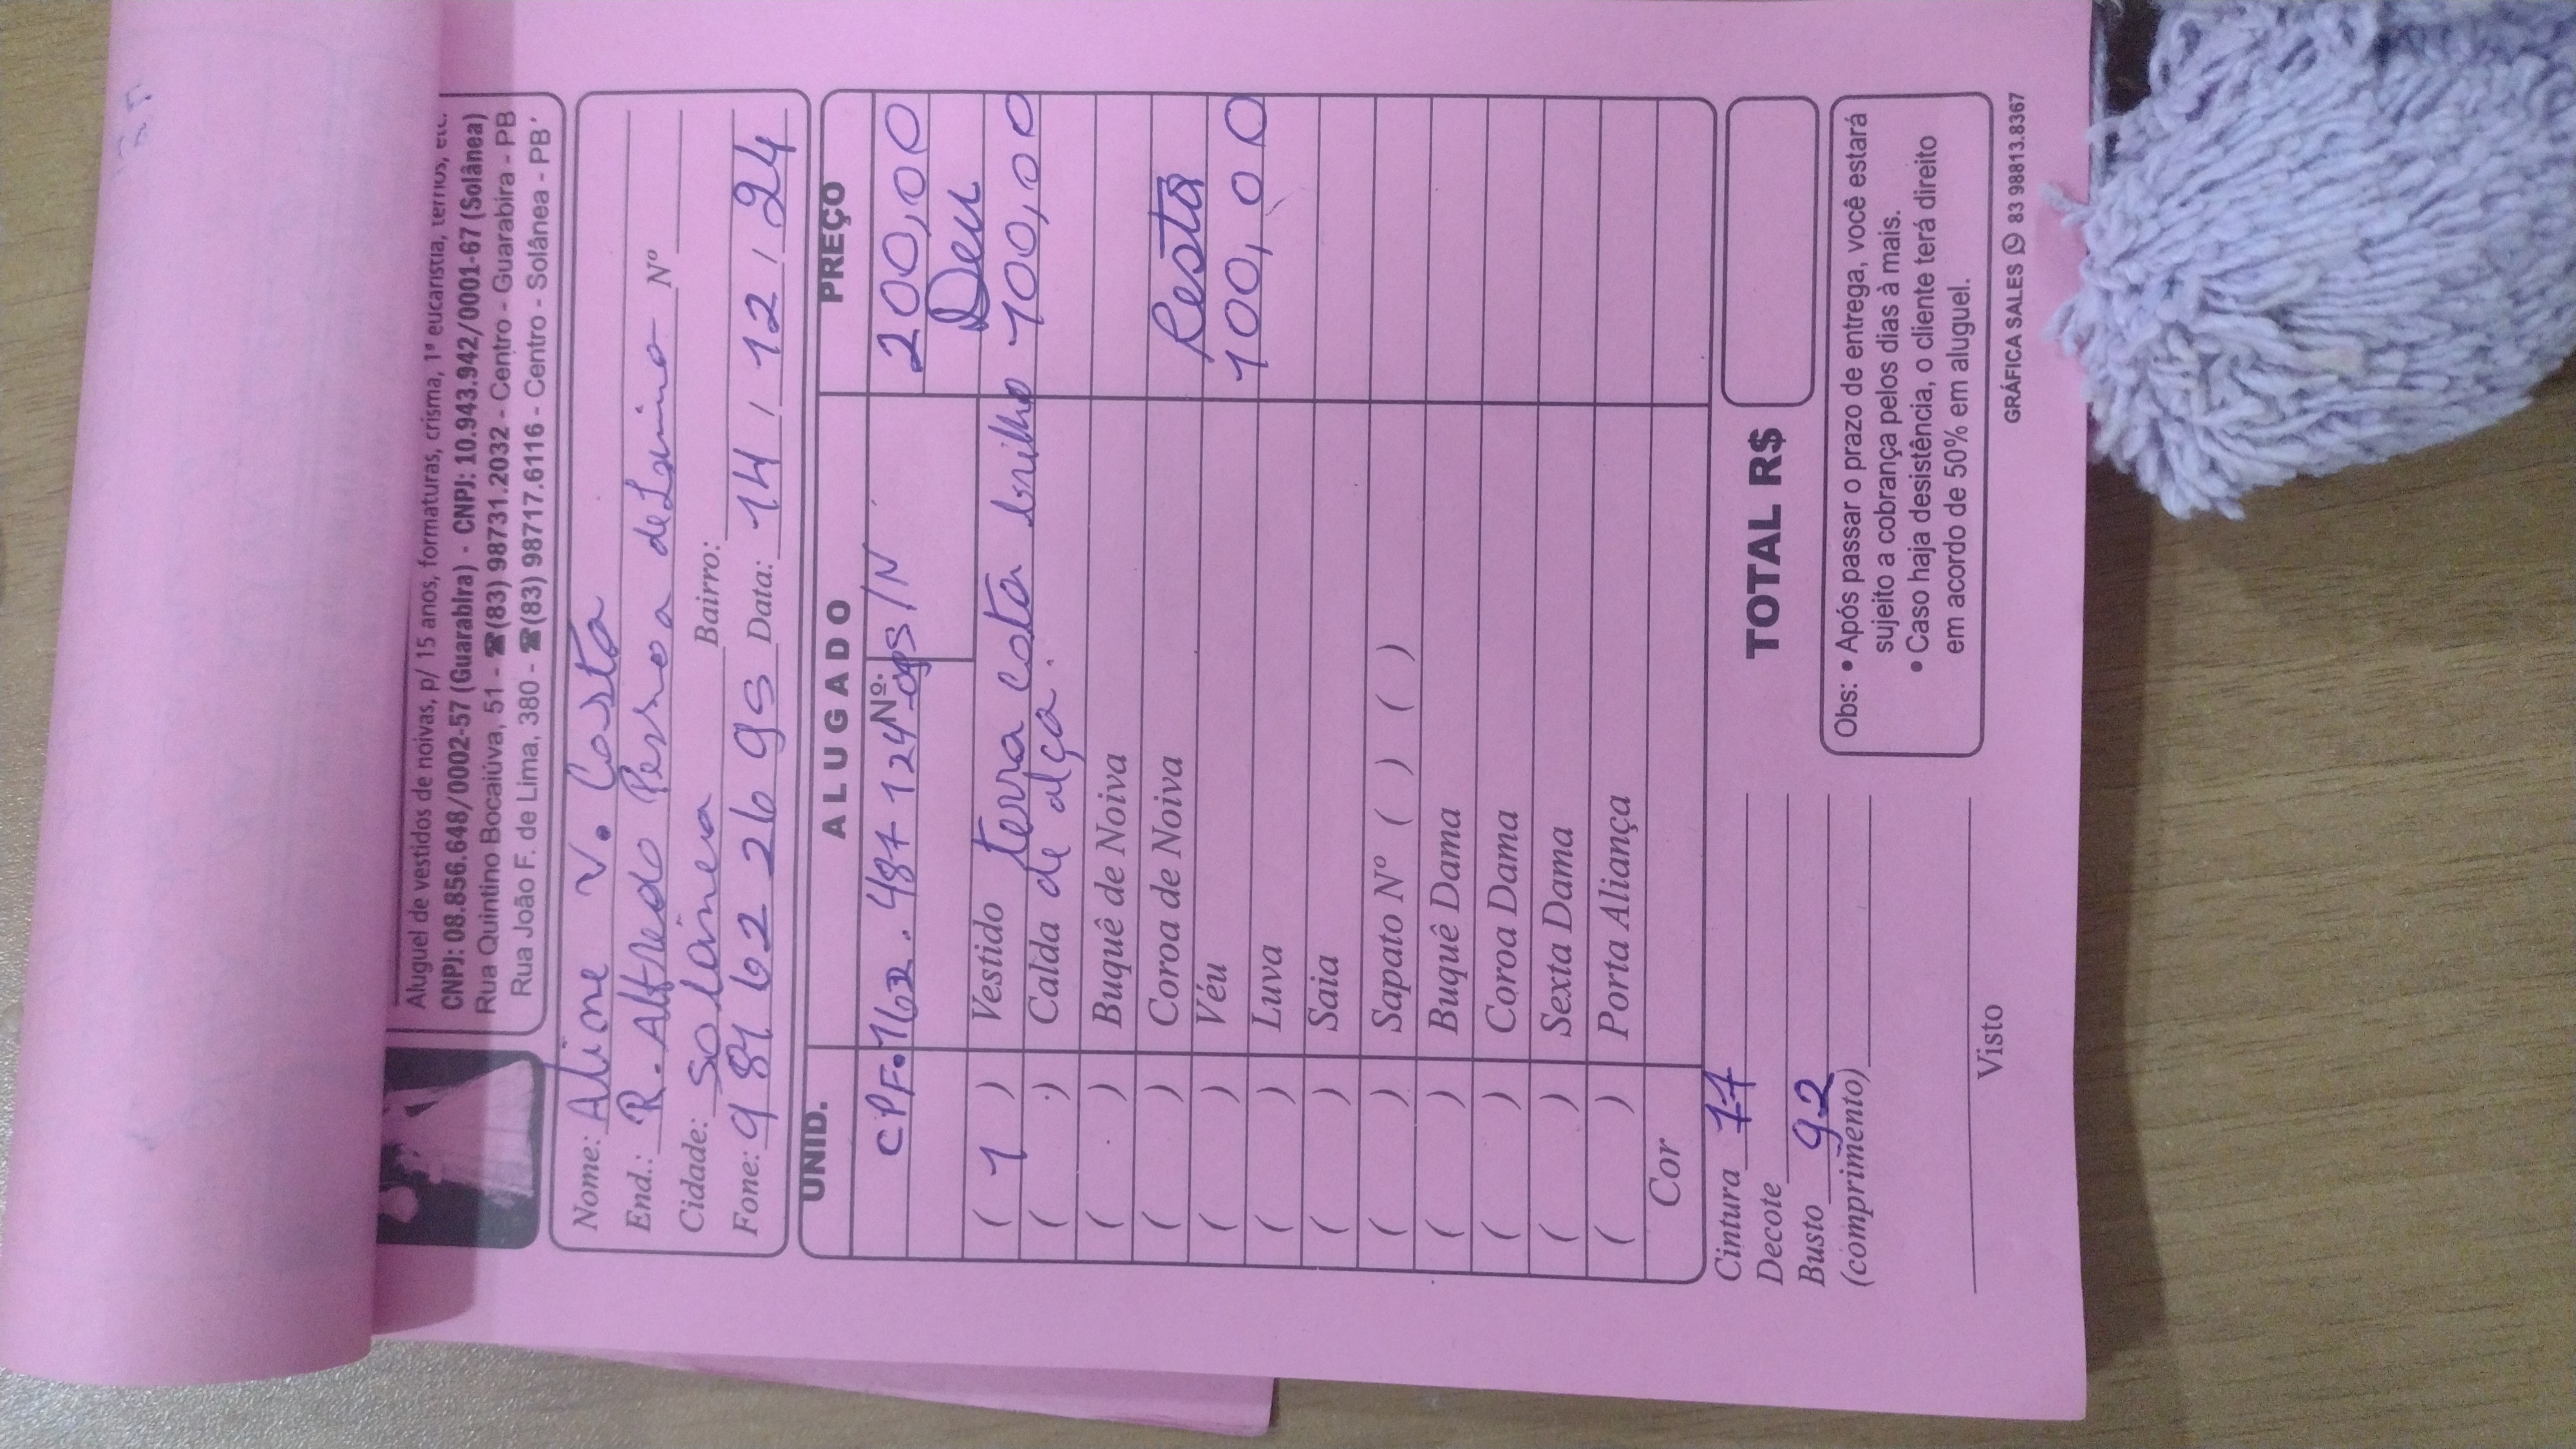 Aluguel de vestidos de noivas, p/ 15 anos, formaturas, crisma, 1ª eucaristia, ternos, etc.
CNPJ: 08.856.648/0002-57 (Guarabira) - CNPJ: 10.943.942/0001-67 (Solânea)
Rua Quintino Bocaiúva, 51 - ☎(83) 98731.2032 - Centro - Guarabira - PB
Rua João F. de Lima, 380 - ☎(83) 98717.6116 - Centro - Solânea - PB
Nome: Aline V. Costa
End.: R. Alfredo Pessoa de Lima Nº
Cidade: Solânea Bairro:
Fone: 9 81 62 26 95 Data: 14 / 12 / 24
UNID. ALUGADO PREÇO
CPF. 162. 487 124 Nº: S/N 200,00
Deu
( 1 ) Vestido terra cota brilho 100,00
( ) Calda de alça.
( ) Buquê de Noiva
( ) Coroa de Noiva Resta
( ) Véu 100,00
( ) Luva
( ) Saia
( ) Sapato Nº ( ) ( )
( ) Buquê Dama
( ) Coroa Dama
( ) Sexta Dama
( ) Porta Aliança
Cor
Cintura 77
Decote
Busto 92
(comprimento)
Visto
TOTAL R$
Obs: • Após passar o prazo de entrega, você estará
sujeito a cobrança pelos dias à mais.
• Caso haja desistência, o cliente terá direito
em acordo de 50% em aluguel.
GRÁFICA SALES 83 98813.8367